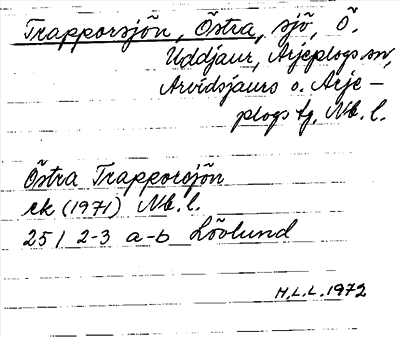 Trapporsjön, Östra, sjö, Ö.
Uddjaur, Arjeplogs sn,
Arvidsjaurs o. Arje-
plogs tg, Nb. l.
Östra Trapporsjön
ek (1971) Nb. l.
25 I 2-3 a-b Löolund
H.L.L. 1972